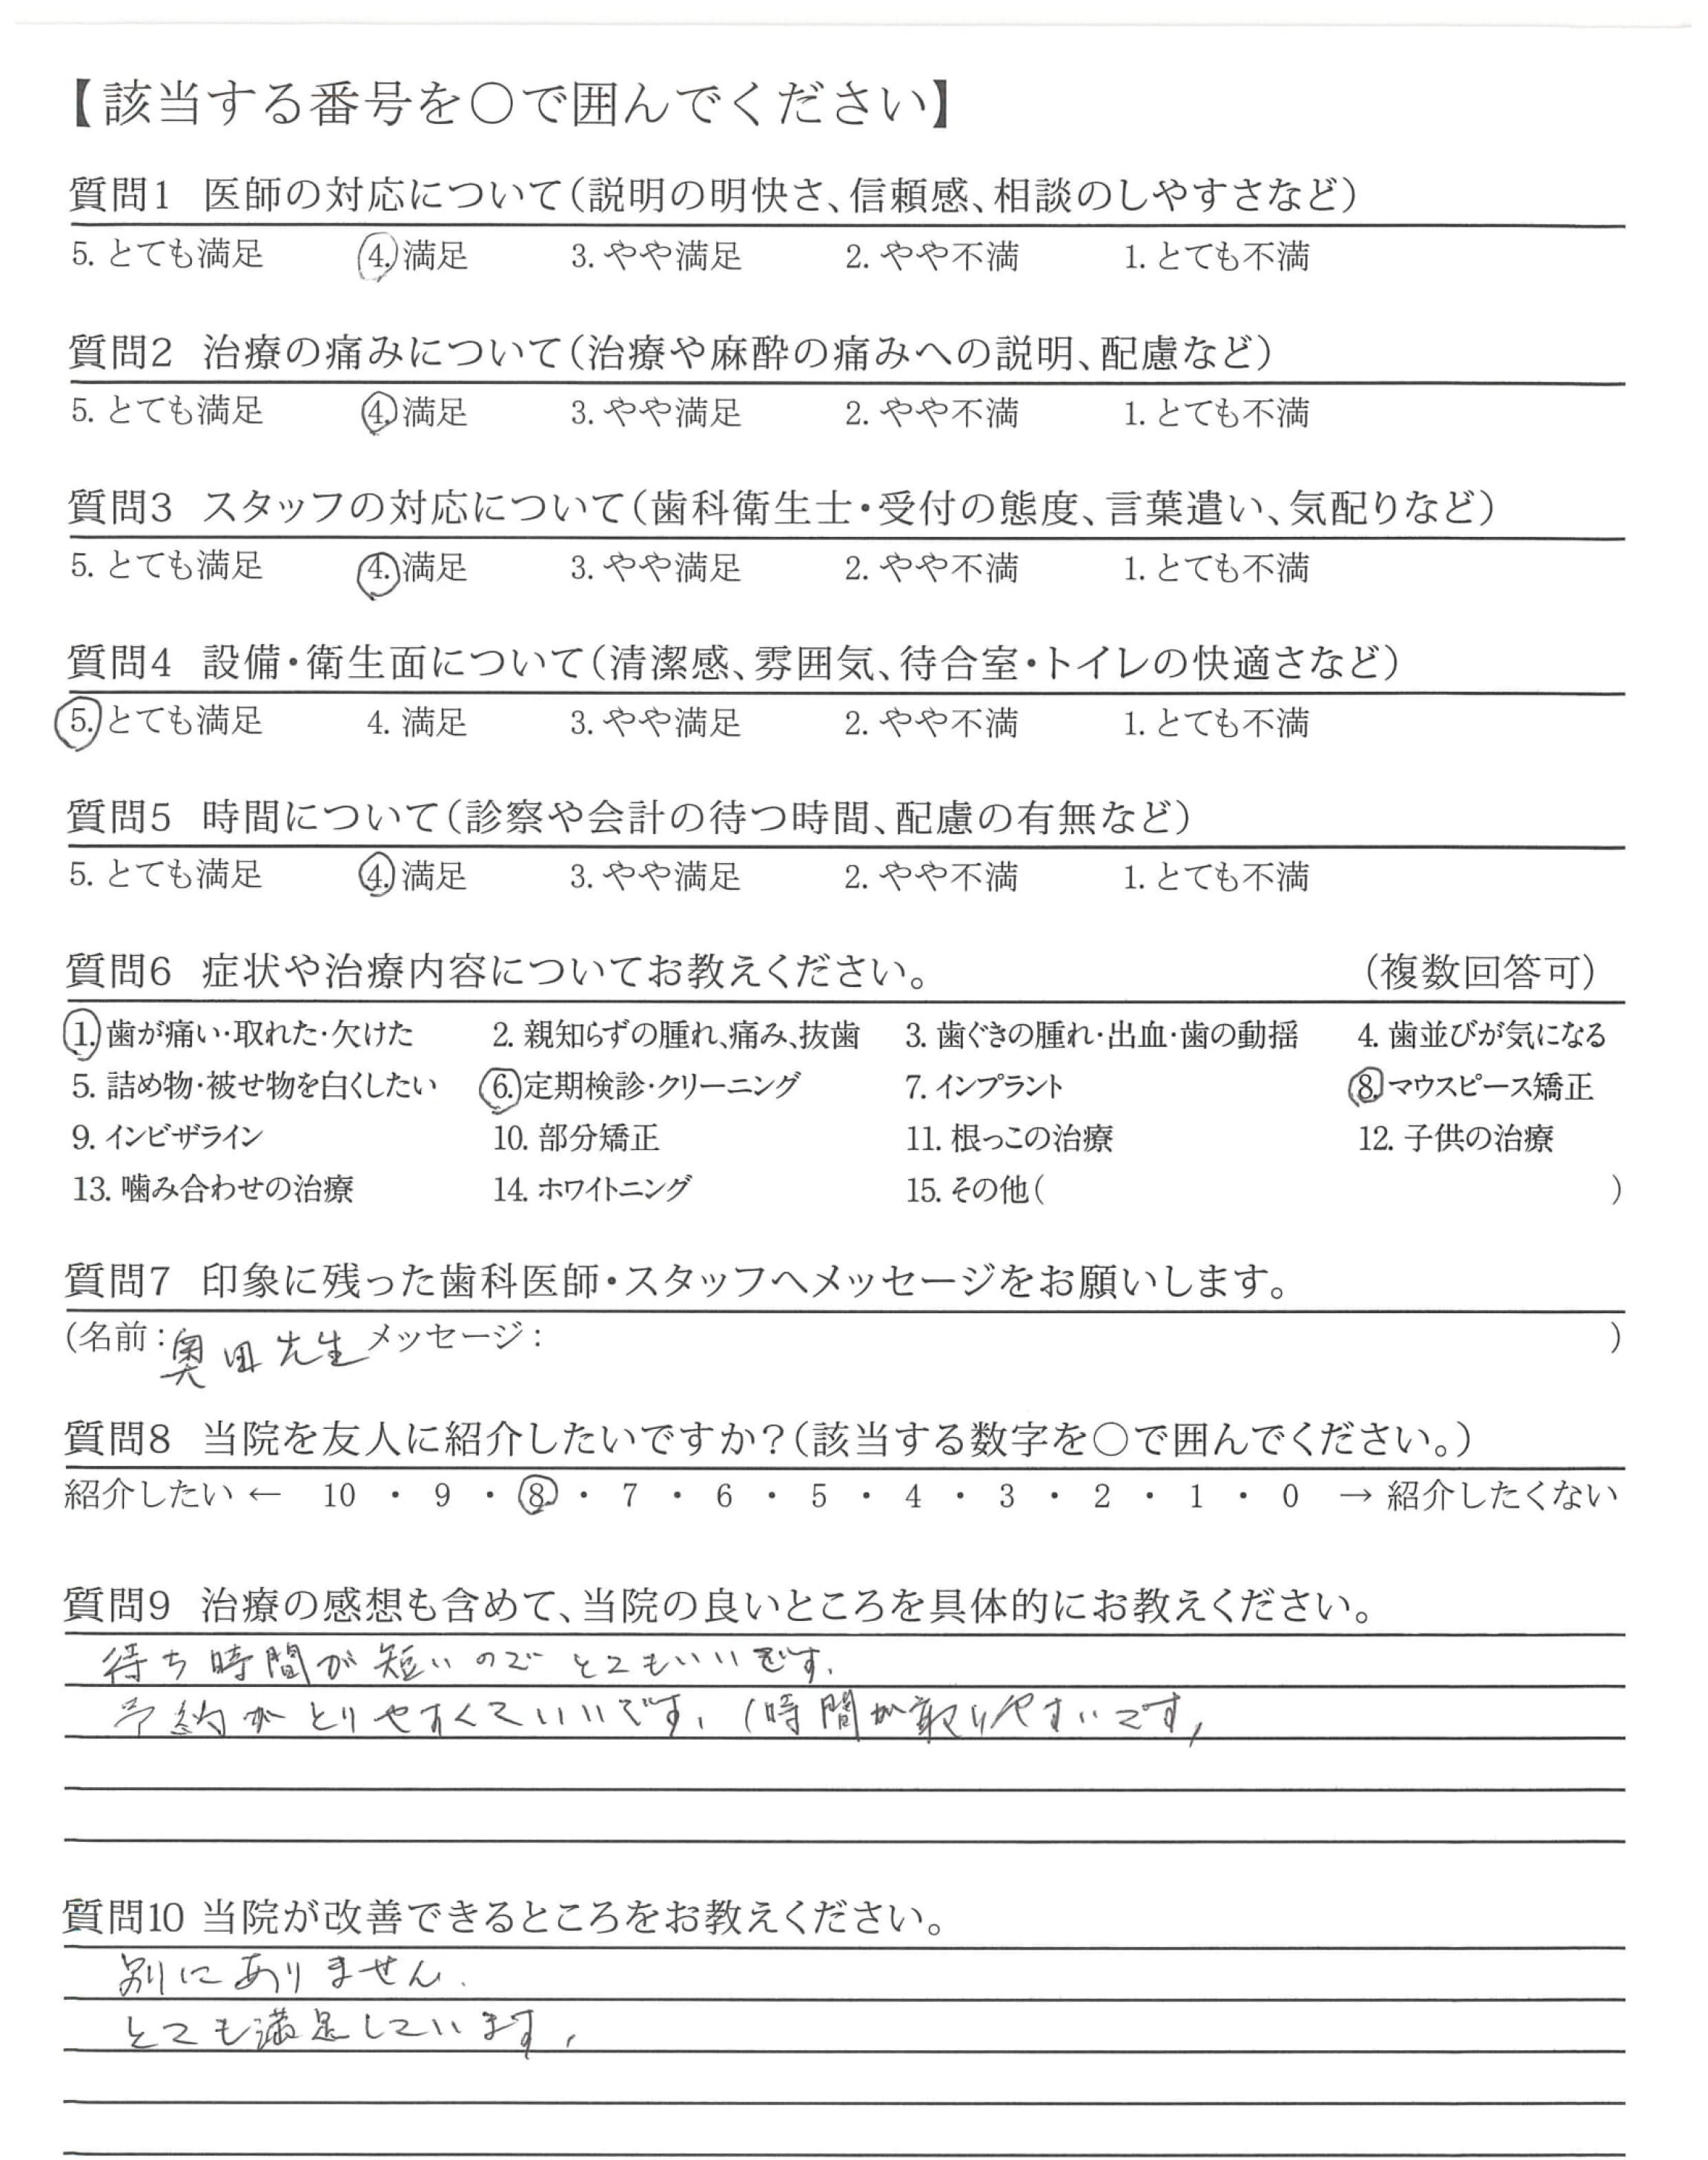 【該当する番号を○で囲んでください】
質問1 医師の対応について(説明の明快さ、信頼感、相談のしやすさなど)
5. とても満足 4. 満足 3. やや満足 2. やや不満 1. とても不満
質問2 治療の痛みについて(治療や麻酔の痛みへの説明、配慮など)
5. とても満足 4. 満足 3. やや満足 2. やや不満 1. とても不満
質問3 スタッフの対応について(歯科衛生士・受付の態度、言葉遣い、気配りなど)
5. とても満足 4. 満足 3. やや満足 2. やや不満 1. とても不満
質問4 設備・衛生面について(清潔感、雰囲気、待合室・トイレの快適さなど)
5. とても満足 4. 満足 3. やや満足 2. やや不満 1. とても不満
質問5 時間について(診察や会計の待つ時間、配慮の有無など)
5. とても満足 4. 満足 3. やや満足 2. やや不満 1. とても不満
質問6 症状や治療内容についてお教えください。 (複数回答可)
1. 歯が痛い・取れた・欠けた 2. 親知らずの腫れ、痛み、抜歯 3. 歯ぐきの腫れ・出血・歯の動揺 4. 歯並びが気になる
5. 詰め物・被せ物を白くしたい 6. 定期検診・クリーニング 7. インプラント 8. マウスピース矯正
9. インビザライン 10. 部分矯正 11. 根っこの治療 12. 子供の治療
13. 噛み合わせの治療 14. ホワイトニング 15. その他( )
質問7 印象に残った歯科医師・スタッフへメッセージをお願いします。
(名前:奥田先生 メッセージ: )
質問8 当院を友人に紹介したいですか?(該当する数字を○で囲んでください。)
紹介したい ← 10 ・ 9 ・ 8 ・ 7 ・ 6 ・ 5 ・ 4 ・ 3 ・ 2 ・ 1 ・ 0 → 紹介したくない
質問9 治療の感想も含めて、当院の良いところを具体的にお教えください。
待ち時間が短いのでとてもいいです.
予約がとりやすくていいです. (時間が取りやすいです,
質問10 当院が改善できるところをお教えください。
別にありません.
とても満足しています,